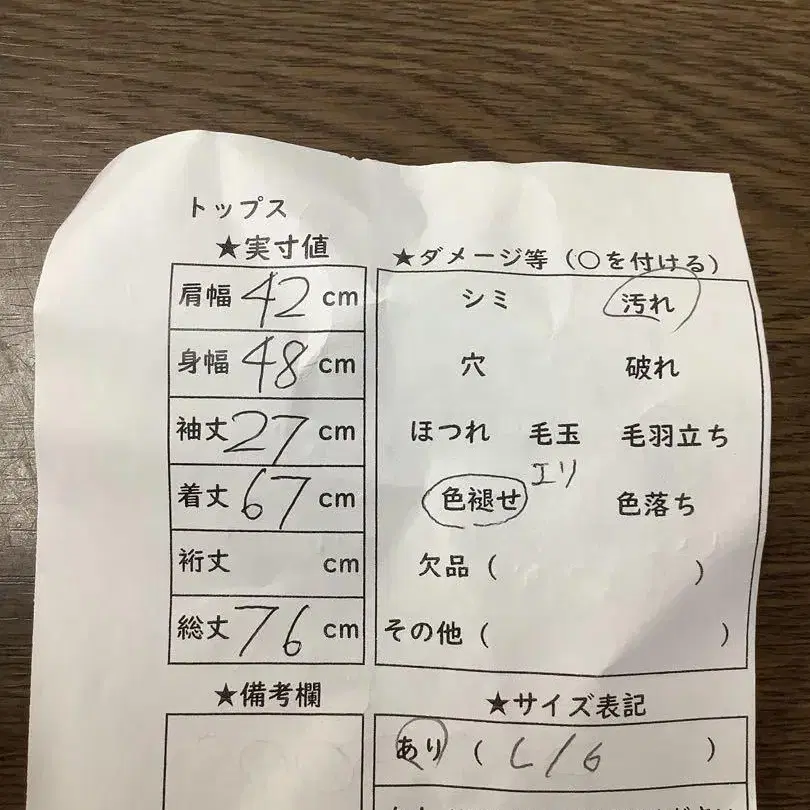 トップス
★実寸値
肩幅 42 cm
身幅 48 cm
袖丈 27 cm
着丈 67 cm
裄丈 cm
総丈 76 cm
★備考欄
★ダメージ等（○を付ける）
シミ 汚れ
穴 破れ
ほつれ 毛玉 毛羽立ち
色褪せ エリ 色落ち
欠品（ ）
その他（ ）
★サイズ表記
あり（ L/G ）